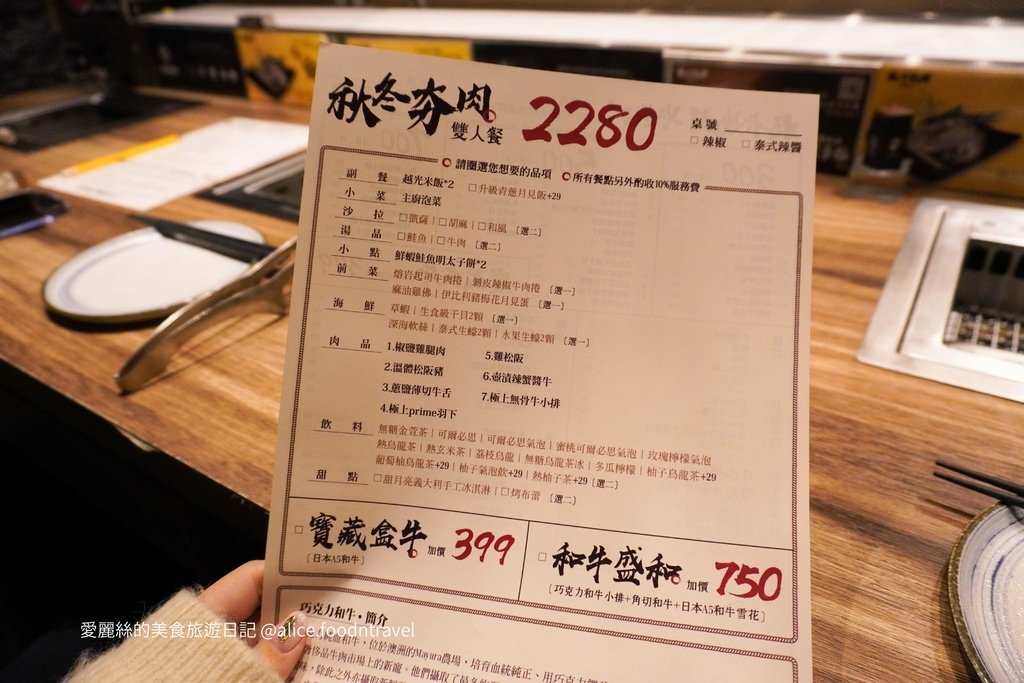 秋冬夯肉 雙人餐 2280
桌號
□ 辣椒 □ 泰式辣醬
請圈選您想要的品項 所有餐點另外酌收10%服務費
副餐 越光米飯*2 □升級青蔥月見飯+29
小菜 主廚泡菜
沙拉 □凱薩｜□胡麻｜□和風 〔選二〕
湯品 □鮭魚｜□牛肉 〔選二〕
小點 鮮蝦鮭魚明太子餅*2
前菜 熔岩起司牛肉捲｜剝皮辣椒牛肉捲 〔選一〕
麻油雞佛｜伊比利豬梅花月見蛋 〔選一〕
海鮮 草蝦｜生食級干貝2顆 〔選一〕
深海軟絲｜泰式生蠔2顆｜水果生蠔2顆 〔選一〕
肉品 1.椒鹽雞腿肉 5.雞松阪
2.溫體松阪豬 6.壺漬辣蟹醬牛
3.蔥鹽薄切牛舌 7.極上無骨牛小排
4.極上prime羽下
飲料 無糖金萱茶｜可爾必思｜可爾必思氣泡｜蜜桃可爾必思氣泡｜玫瑰檸檬氣泡
熱烏龍茶｜熱玄米茶｜荔枝烏龍｜無糖烏龍茶冰｜冬瓜檸檬｜柚子烏龍茶+29
葡萄柚烏龍茶+29｜柚子氣泡飲+29｜熱柚子茶+29〔選二〕
甜點 □甜月亮義大利手工冰淇淋｜□烤布蕾 〔選二〕
□ 寶藏盒牛 加價 399
〔日本A5和牛〕
□ 和牛盛和 加價 750
〔巧克力和牛小排+角切和牛+日本A5和牛雪花〕
巧克力和牛·簡介
和牛，位於澳洲的Mayura農場，培育血統純正、用巧克力
侈品牛肉市場上的新寵。他們攝取了最多的
味，除此之外亦攝取
愛麗絲的美食旅遊日記 @alice.foodntravel